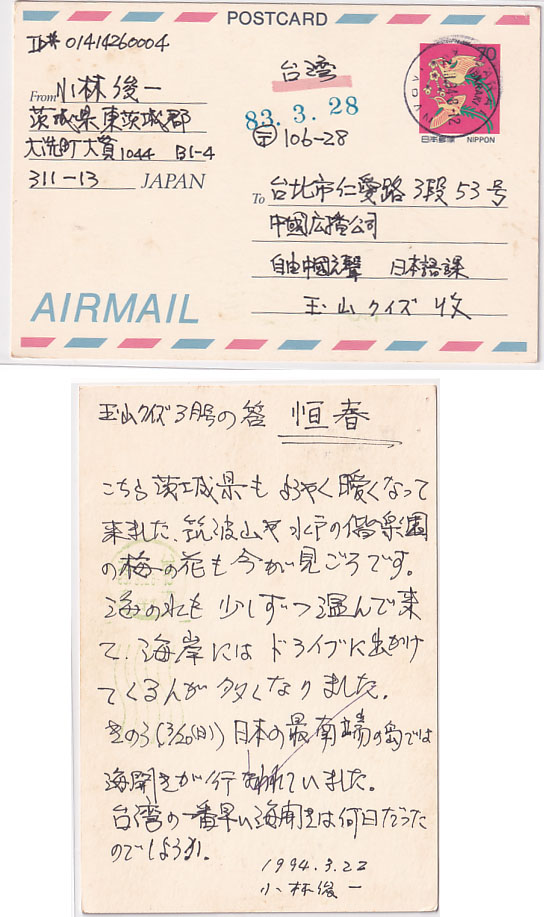 POSTCARD
ID# 01414260004
From 小林俊一
茨城県東茨城郡
大洗町大貫1044 B1-4
311-13 JAPAN
台湾
83.3.28
〒106-28
70
日本郵便 NIPPON
To 台北市仁愛路3段53号
中國広播公司
自由中國之聲 日本語課
玉山クイズ 收
AIRMAIL
玉山クイズ3月号の答 恒春
こちら茨城県もようやく暖くなって
来ました、筑波山や水戸の偕楽園
の梅の花も今が見ごろです。
海の水も少しずつ温んで来
て、海岸にはドライブに出かけ
てくる人が多くなりました。
きのう(3/20(日))日本の最南端の島では
海開きが行われていました。
台湾の一番早い海開きは何日だった
のでしょうか。
1994.3.22
小林俊一